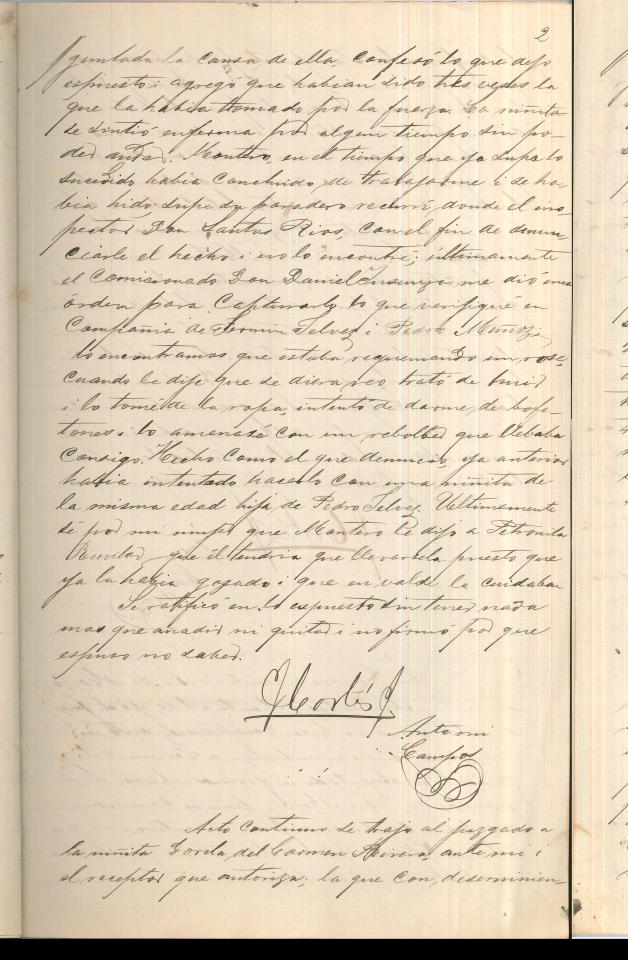 2
guntada la causa de ella confesó lo que dejo
espuesto i agregó que habian sido tres veces la
que la habia tomado por la fuerza. La niñita
se sintió enferma por algun tiempo sin po-
der andar. Montero, en el tiempo que yo supe lo
sucedido habia concluido de trabajarme i se ha-
bia hido, supe su paradero recurrí donde el ins-
pector Don Santos Rios, con el fin de denun-
ciarle el hecho i no lo encontré; ultimamente
el Comicionado Don Daniel me dió una
órden para Capturarlo lo que verifiqué en
Compañia de Fermin Selvez i Pedro Muñoz i
lo encontramos que estaba requemando un rose,
cuando le dije que se diera reo, trató de huir
i lo tomé de la ropa, intentó de darme de bofe-
tones i lo amenasé con un rebolber que llebaba
consigo. Hecho como el que denuncio, ya anterior
habia intentado hacerlo con una niñita de
la misma edad hija de Pedro Selvez. Ultimamente
sé por mi mujer que Montero le dijo a Petronila
que él tendria que llevarsela puesto que
ya la habia gozado i que en valde la cuidaban
Se ratificó en lo espuesto sin tener nada
mas que añadir ni quitar i no firmó por que
espuso no saber.
J Cortés J.
Ante mi
Campos
Acto continuo se trajo al juzgado a
la niñita del Carmen Rivera, ante mi i
el receptor que autoriza; la que con deserminien-